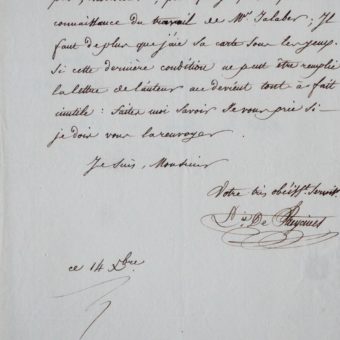 connaissance du travail de Mr. Jalabert ; Il
faut de plus que j'aie sa carte sous les yeux.
Si cette dernière condition ne peut être remplie
la lettre de l'auteur me devient tout à fait
inutile : faites moi savoir Je vous prie si
je dois vous la renvoyer.
Je suis, Monsieur
Votre très obéisst. servit.
De
ce 14 Xbre